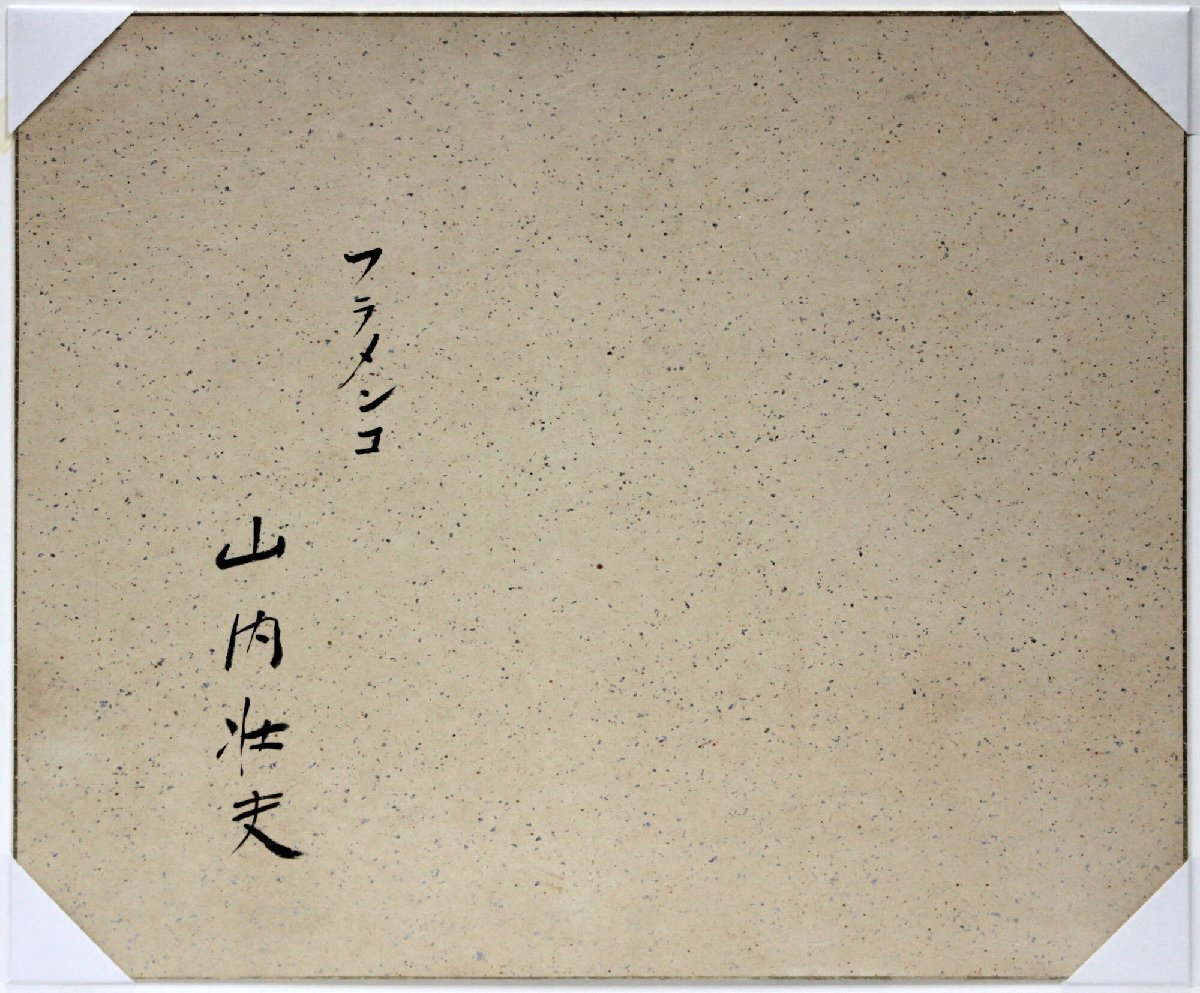 フラメンコ
山内壮夫